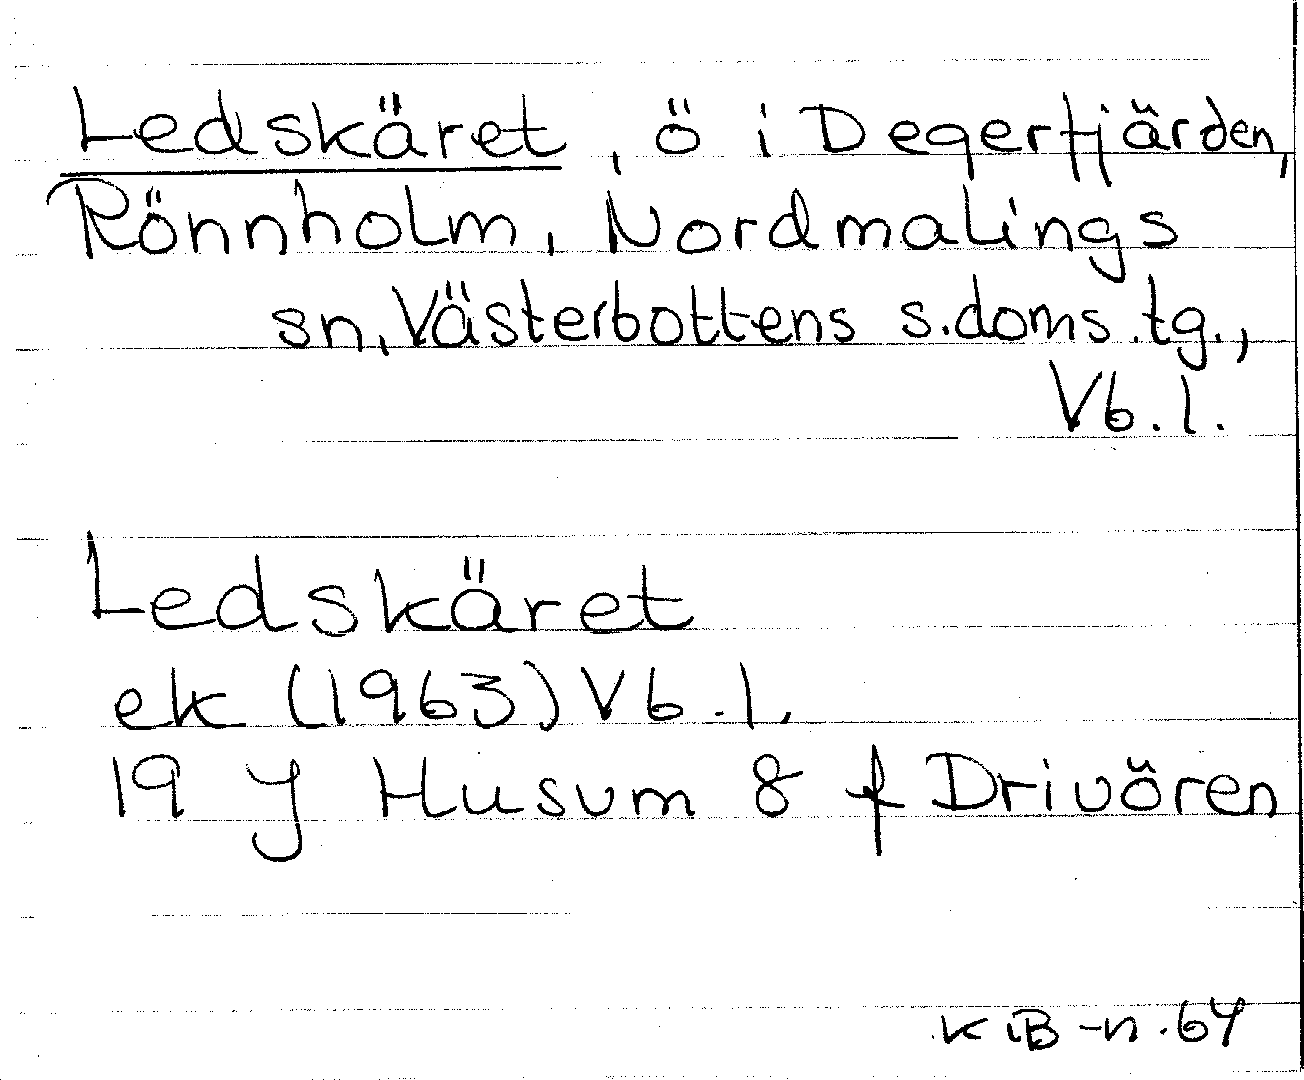 Ledskäret, ö i Degerfjärden,
Rönnholm, Nordmalings
sn, Västerbottens s.doms.tg.,
Vb.l.
Ledskäret
ek (1963) Vb.l.
19 J Husum 8 f Drivören
K B-n.64